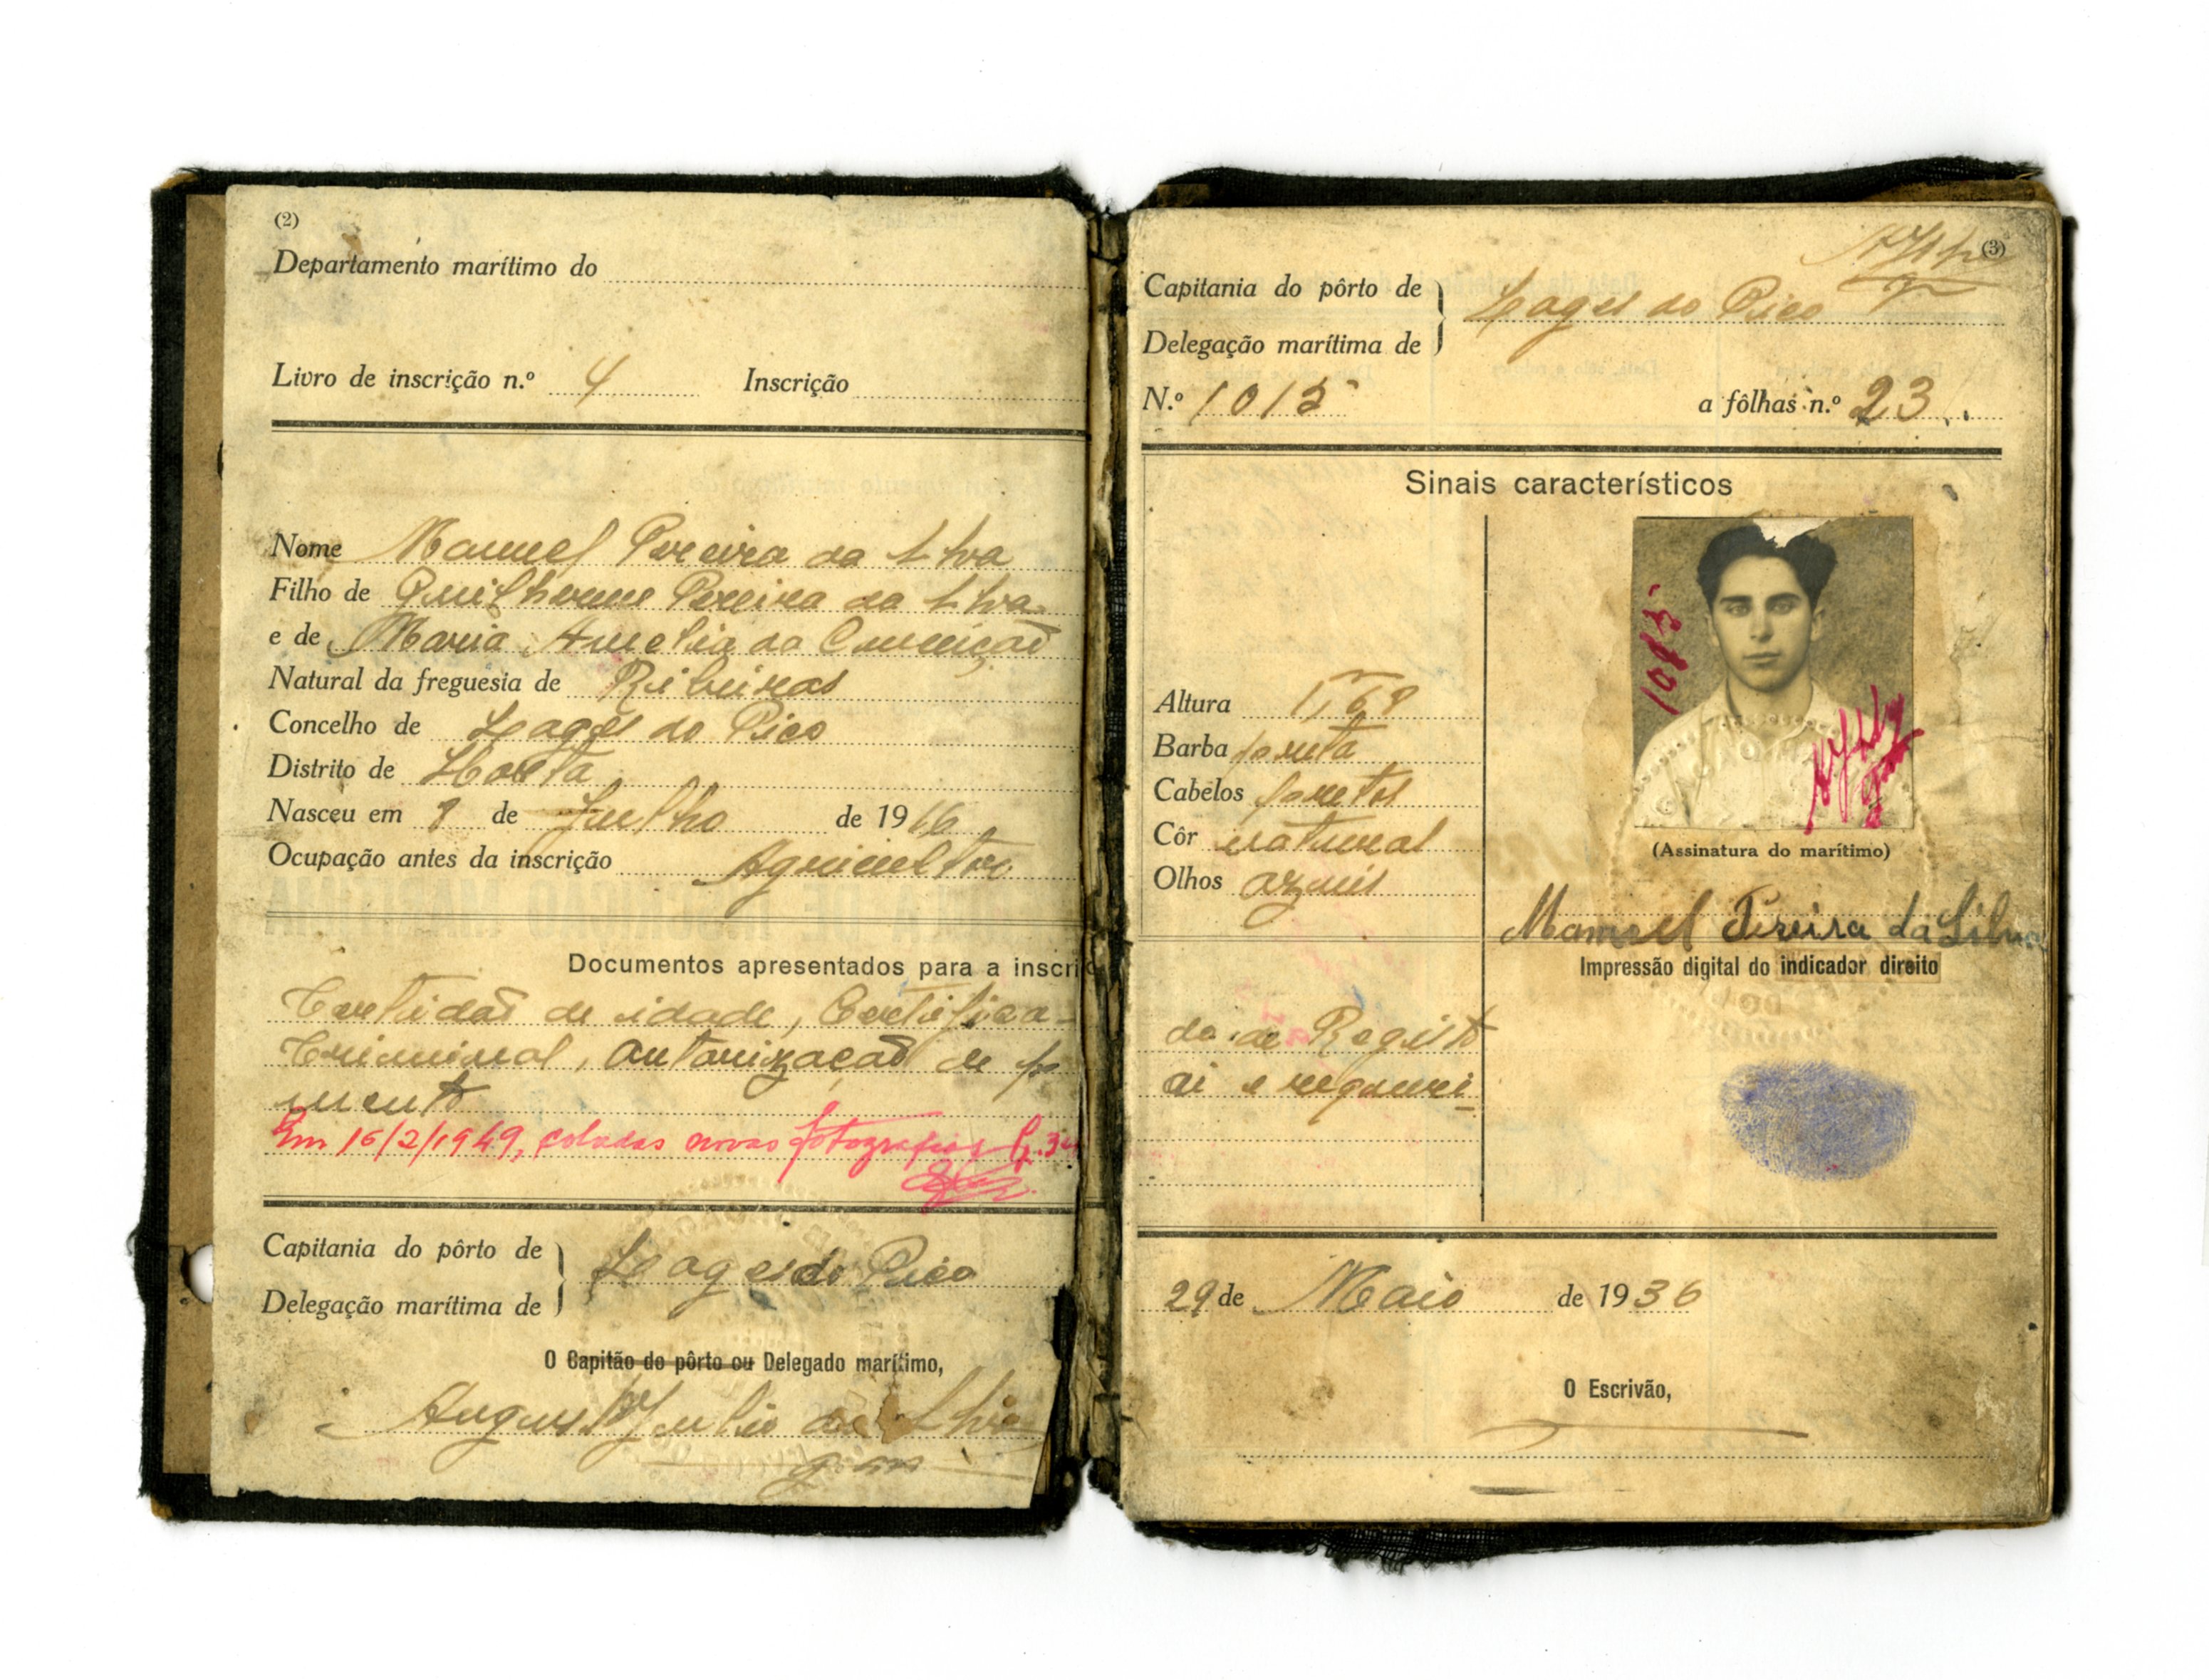 (2)
Departamento marítimo do
Livro de inscrição n.º 4 Inscrição
Nome Manuel Pereira da Silva
Filho de Guilherme Pereira da Silva
e de Maria Amelia da Conceição
Natural da freguesia de Ribeiras
Concelho de Lages do Pico
Distrito de Horta
Nasceu em de Julho de 1916
Ocupação antes da inscrição Agricultor
Documentos apresentados para a inscri
Certidão de idade, Certifica-
Criminal, autorização de p
mento
Em 16/2/1949, coladas novas fotografias
Capitania do pôrto de
Lages do Pico
Delegação marítima de
O Capitão do pôrto ou Delegado marítimo,
Augusto Julio da Silva
(3)
Capitania do pôrto de
Lages do Pico
Delegação marítima de
N.º 1015 a fôlhas n.º 23
Sinais característicos
1015
Altura 1,68
Barba preta
Cabelos pretos
Côr natural
Olhos azuis
(Assinatura do marítimo)
Manuel Pereira da Silva
Impressão digital do indicador direito
do de Registo
ai e requeri-
29 de Maio de 1936
O Escrivão,